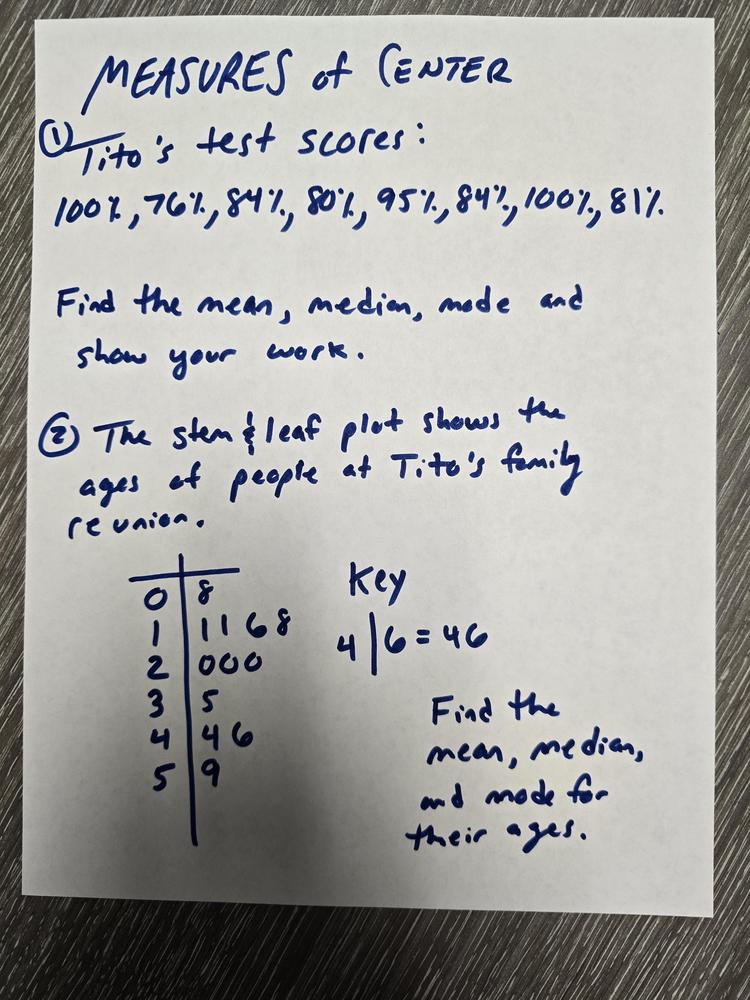 MEASURES of CENTER
① Tito's test scores:
100%, 76%, 84%, 80%, 95%, 84%, 100%, 81%
Find the mean, median, mode and
show your work.
② The stem & leaf plot shows the
ages of people at Tito's family
reunion.
0 | 8
1 | 1 1 6 8
2 | 0 0 0
3 | 5
4 | 4 6
5 | 9
Key
4 | 6 = 46
Find the
mean, median,
and mode for
their ages.